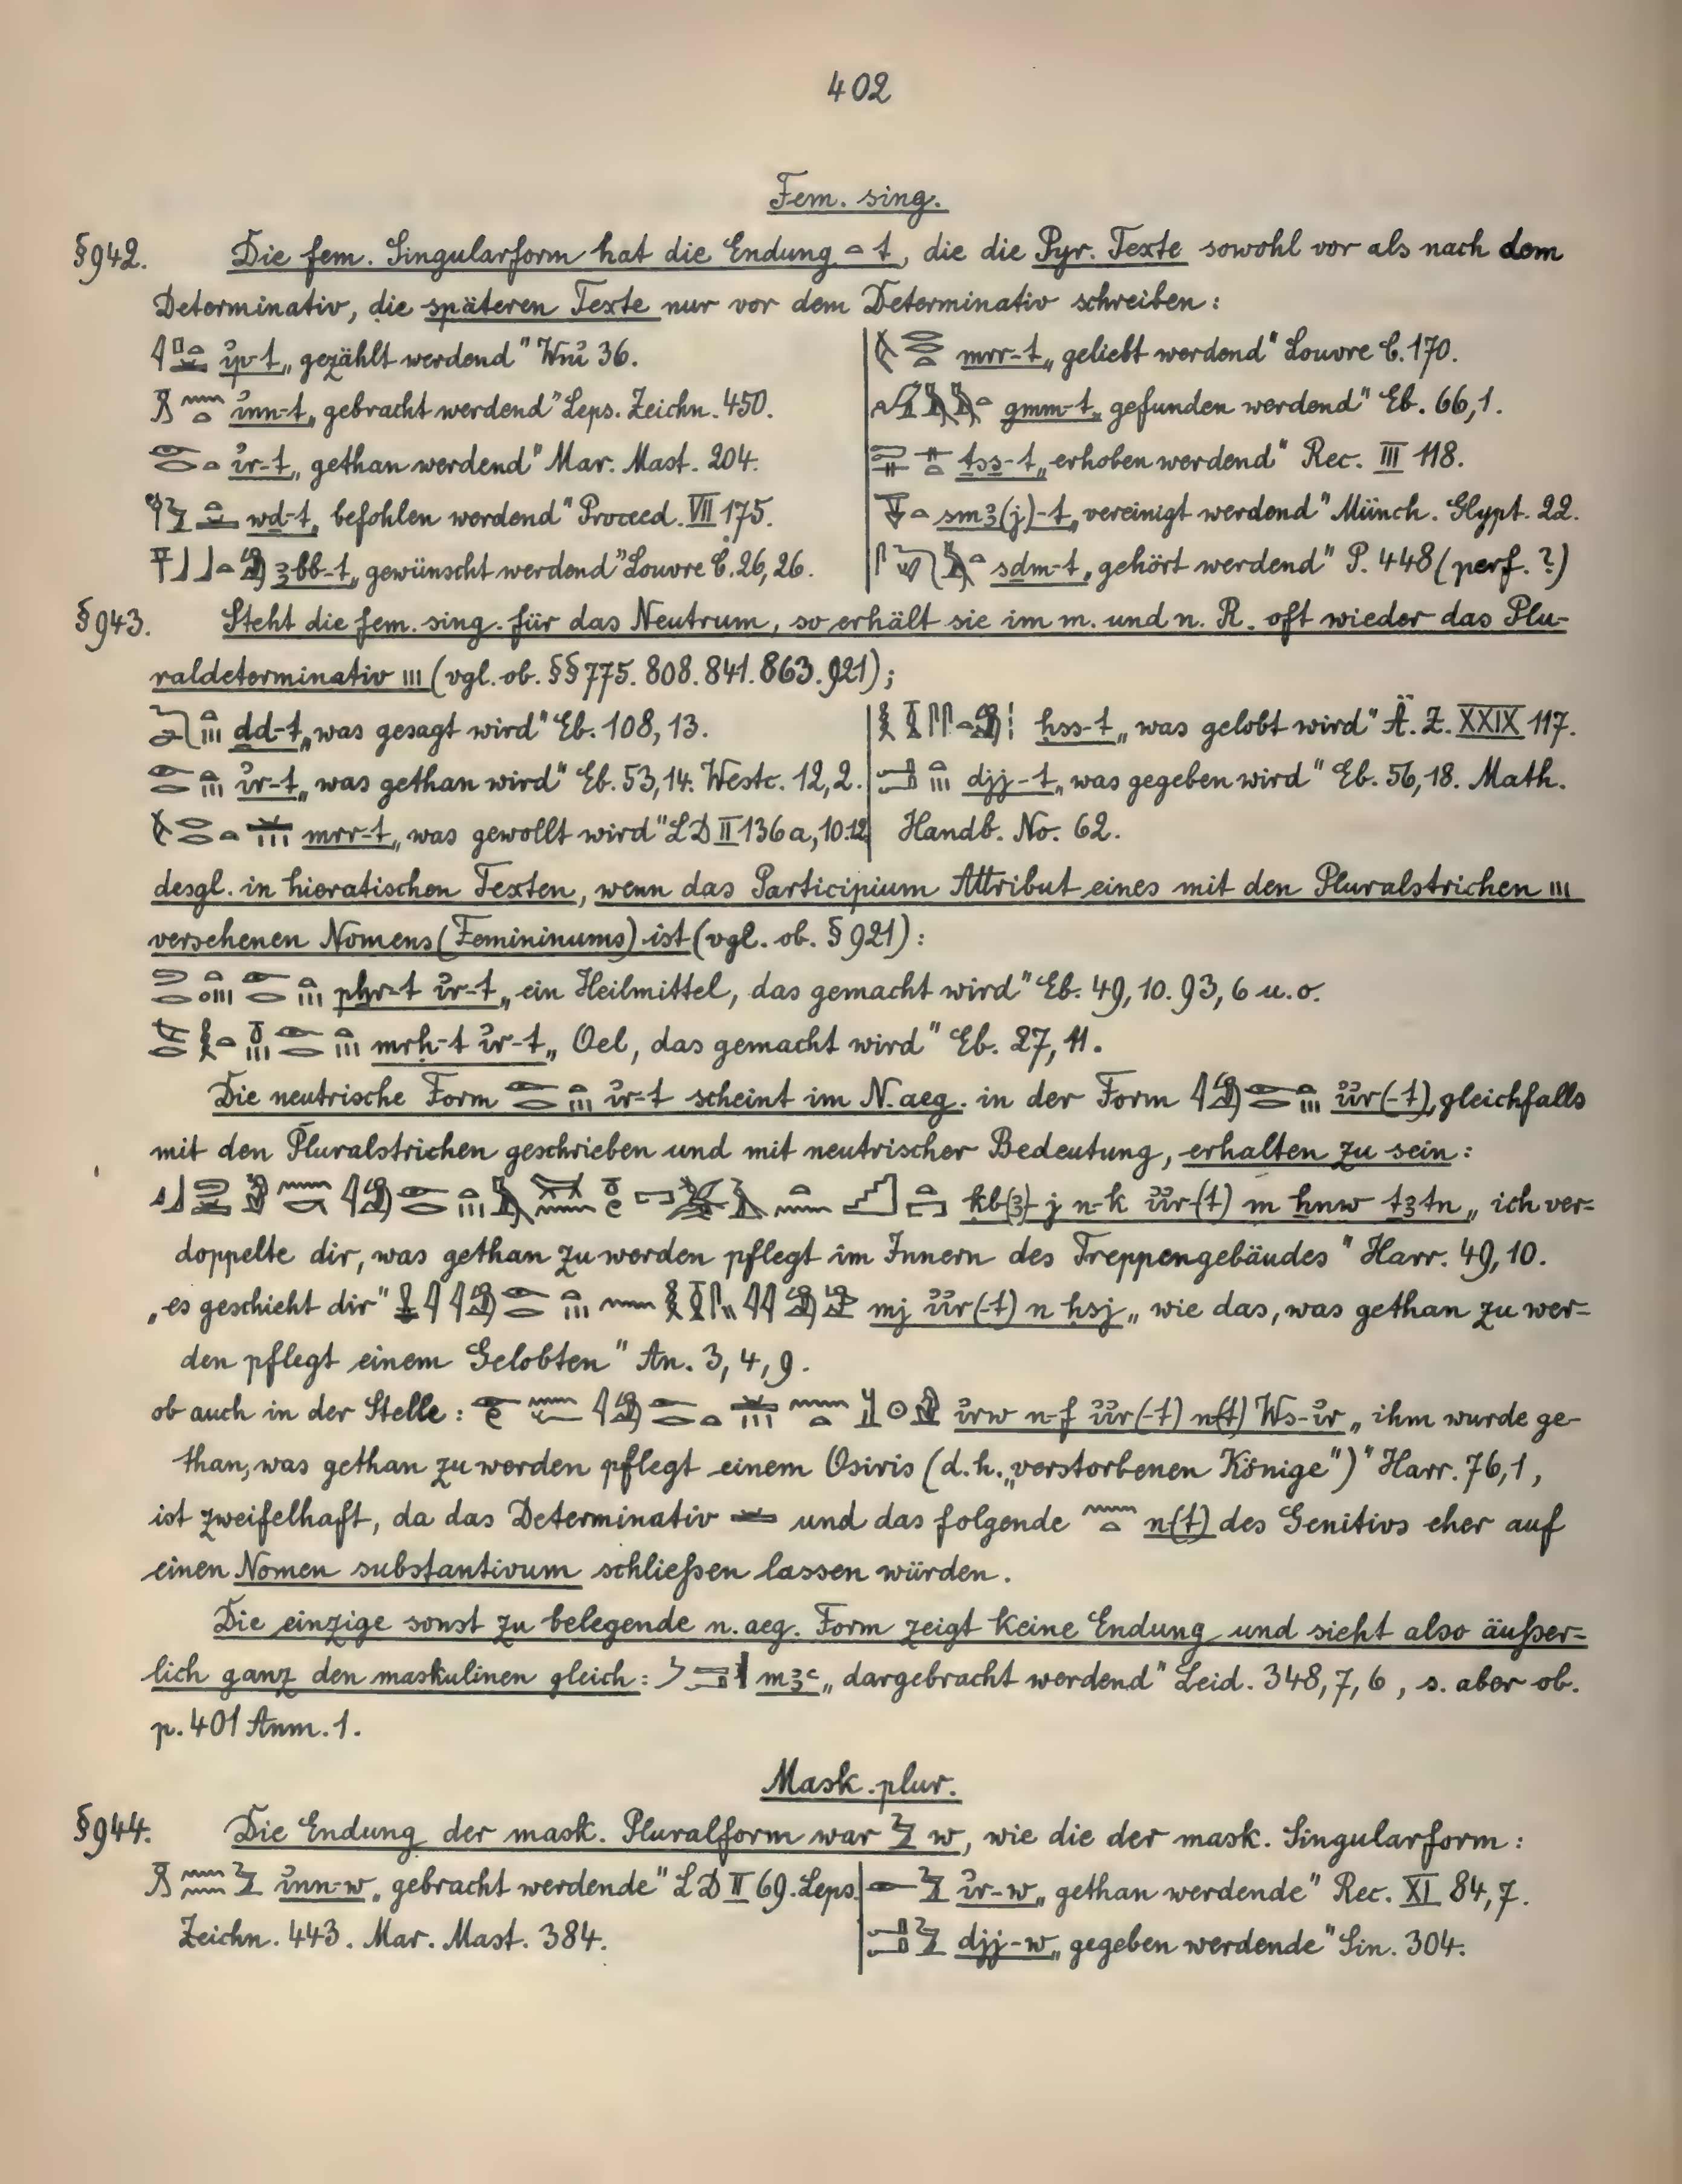 402
Fem. sing.
§942. Die fem. Singularform hat die Endung 𓏏 t, die die Pyr. Texte sowohl vor als nach dem
Determinativ, die späteren Texte nur vor dem Determinativ schreiben:
ı͗p-t „gezählt werdend“ Wnı͗ 36.
mrr-t „geliebt werdend“ Louvre C. 170.
ı͗nn-t „gebracht werdend“ Leps. Zeichn. 450.
gmm-t „gefunden werdend“ Eb. 66,1.
ı͗r-t „gethan werdend“ Mar. Mast. 204.
ṯss-t „erhoben werdend“ Rec. III 118.
wḏ-t „befohlen werdend“ Proceed. VII 175.
smꜣ(j)-t „vereinigt werdend“ Münch. Glypt. 22.
ꜣbb-t „gewünscht werdend“ Louvre C. 26,26.
sḏm-t „gehört werdend“ P. 448 (perf.?)
§943. Steht die fem. sing. für das Neutrum, so erhält sie im m. und n. R. oft wieder das Plu-
raldeterminativ 𓏥 (vgl. ob. §§775. 808. 841. 863. 921);
ḏd-t „was gesagt wird“ Eb. 108, 13.
ḥss-t „was gelobt wird“ Ä. Z. XXIX 117.
ı͗r-t „was gethan wird“ Eb. 53,14. Westc. 12,2.
djj-t „was gegeben wird“ Eb. 56,18. Math.
mrr-t „was gewollt wird“ LD II 136a, 10.12
Handb. No. 62.
desgl. in hieratischen Texten, wenn das Participium Attribut eines mit den Pluralstrichen 𓏥
versehenen Nomens (Femininums) ist (vgl. ob. §921):
pẖr-t ı͗r-t „ein Heilmittel, das gemacht wird“ Eb. 49,10. 93,6 u. o.
mrḥ-t ı͗r-t „Oel, das gemacht wird“ Eb. 27, 11.
Die neutrische Form ı͗r-t scheint im N. aeg. in der Form ı͗ı͗r(-t), gleichfalls
mit den Pluralstrichen geschrieben und mit neutrischer Bedeutung, erhalten zu sein:
ḳb(ꜣ)-j n-k ı͗ı͗r-(t) m ẖnw tꜣ tn „ich ver-
doppelte dir, was gethan zu werden pflegt im Innern des Treppengebäudes“ Harr. 49,10.
„es geschieht dir“ mj ı͗ı͗r(-t) n ḥsj „wie das, was gethan zu wer-
den pflegt einem Gelobten“ An. 3,4,9.
ob auch in der Stelle: ı͗rw n-f ı͗ı͗r(-t) n(t) Ws-ı͗r „ihm wurde ge-
than, was gethan zu werden pflegt einem Osiris (d.h. „verstorbenen Könige“)“ Harr. 76,1,
ist zweifelhaft, da das Determinativ 𓏛 und das folgende n(t) des Genitivs eher auf
einen Nomen substantivum schließen lassen würden.
Die einzige sonst zu belegende n. aeg. Form zeigt keine Endung und sieht also äußer-
lich ganz den maskulinen gleich: mꜣꜥ „dargebracht werdend“ Leid. 348, 7, 6, s. aber ob.
p. 401 Anm. 1.
Mask. plur.
§944. Die Endung der mask. Pluralform war w, wie die der mask. Singularform:
ı͗nn-w „gebracht werdende“ LD II 69. Leps.
ı͗r-w „gethan werdende“ Rec. XI 84,7.
Zeichn. 443. Mar. Mast. 384.
djj-w „gegeben werdende“ Sin. 304.